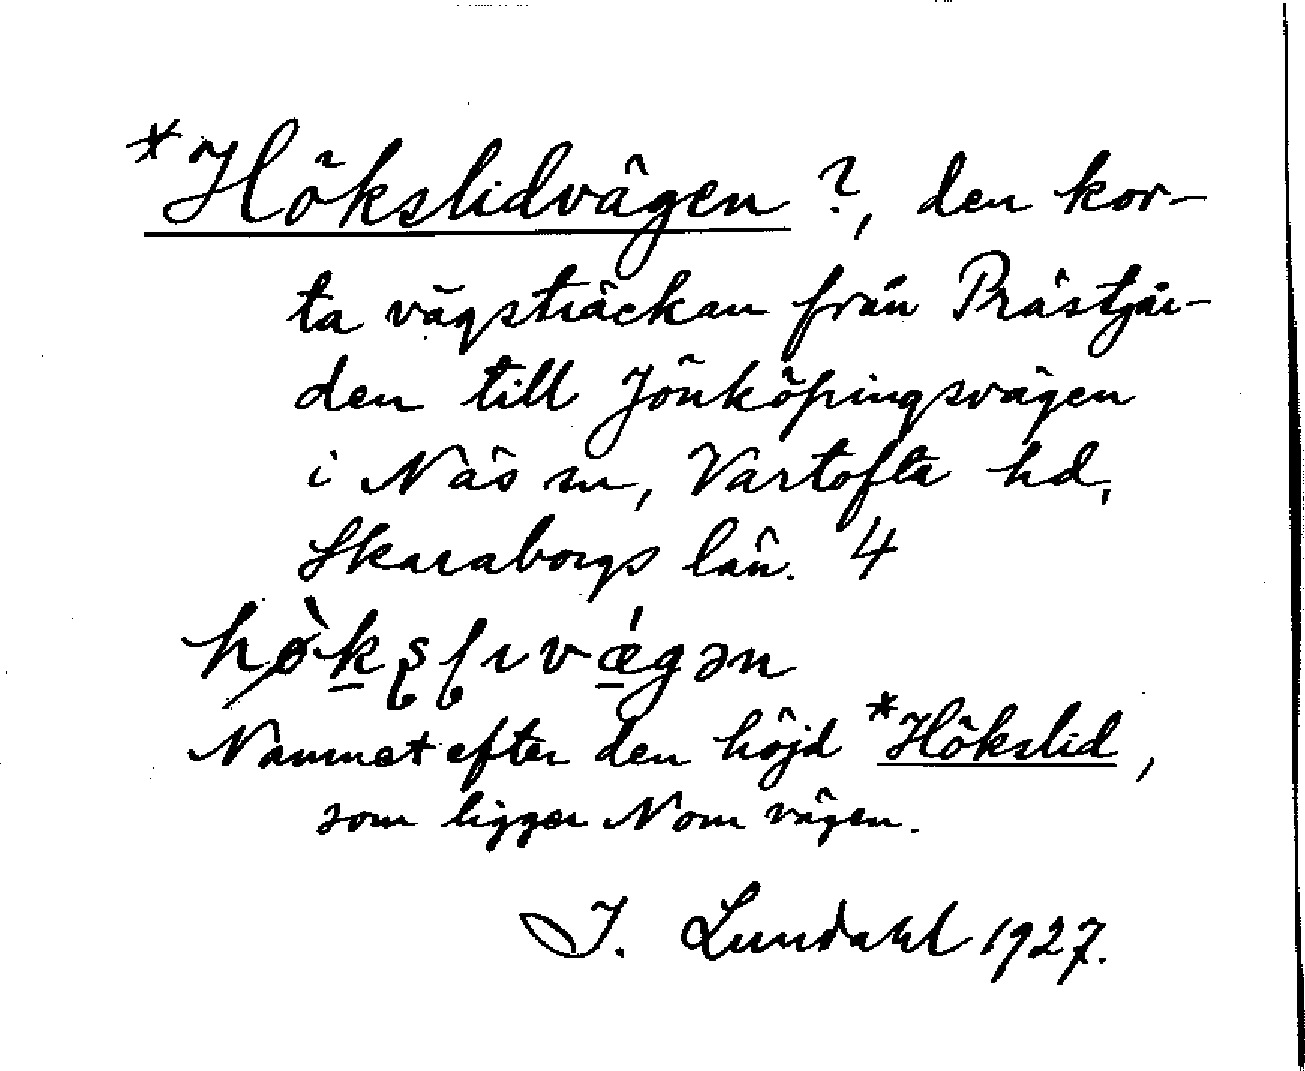 *Hökslidvägen ?, den kor-
ta vägsträckan från Prästgår-
den till Jönköpingsvägen
i Näs sn, Vartofta hd,
Skaraborgs län. 4
hø̀kslɩvǽgən
Namnet efter den höjd *Hökslid,
som ligger N om vägen.
I. Lundahl 1927.